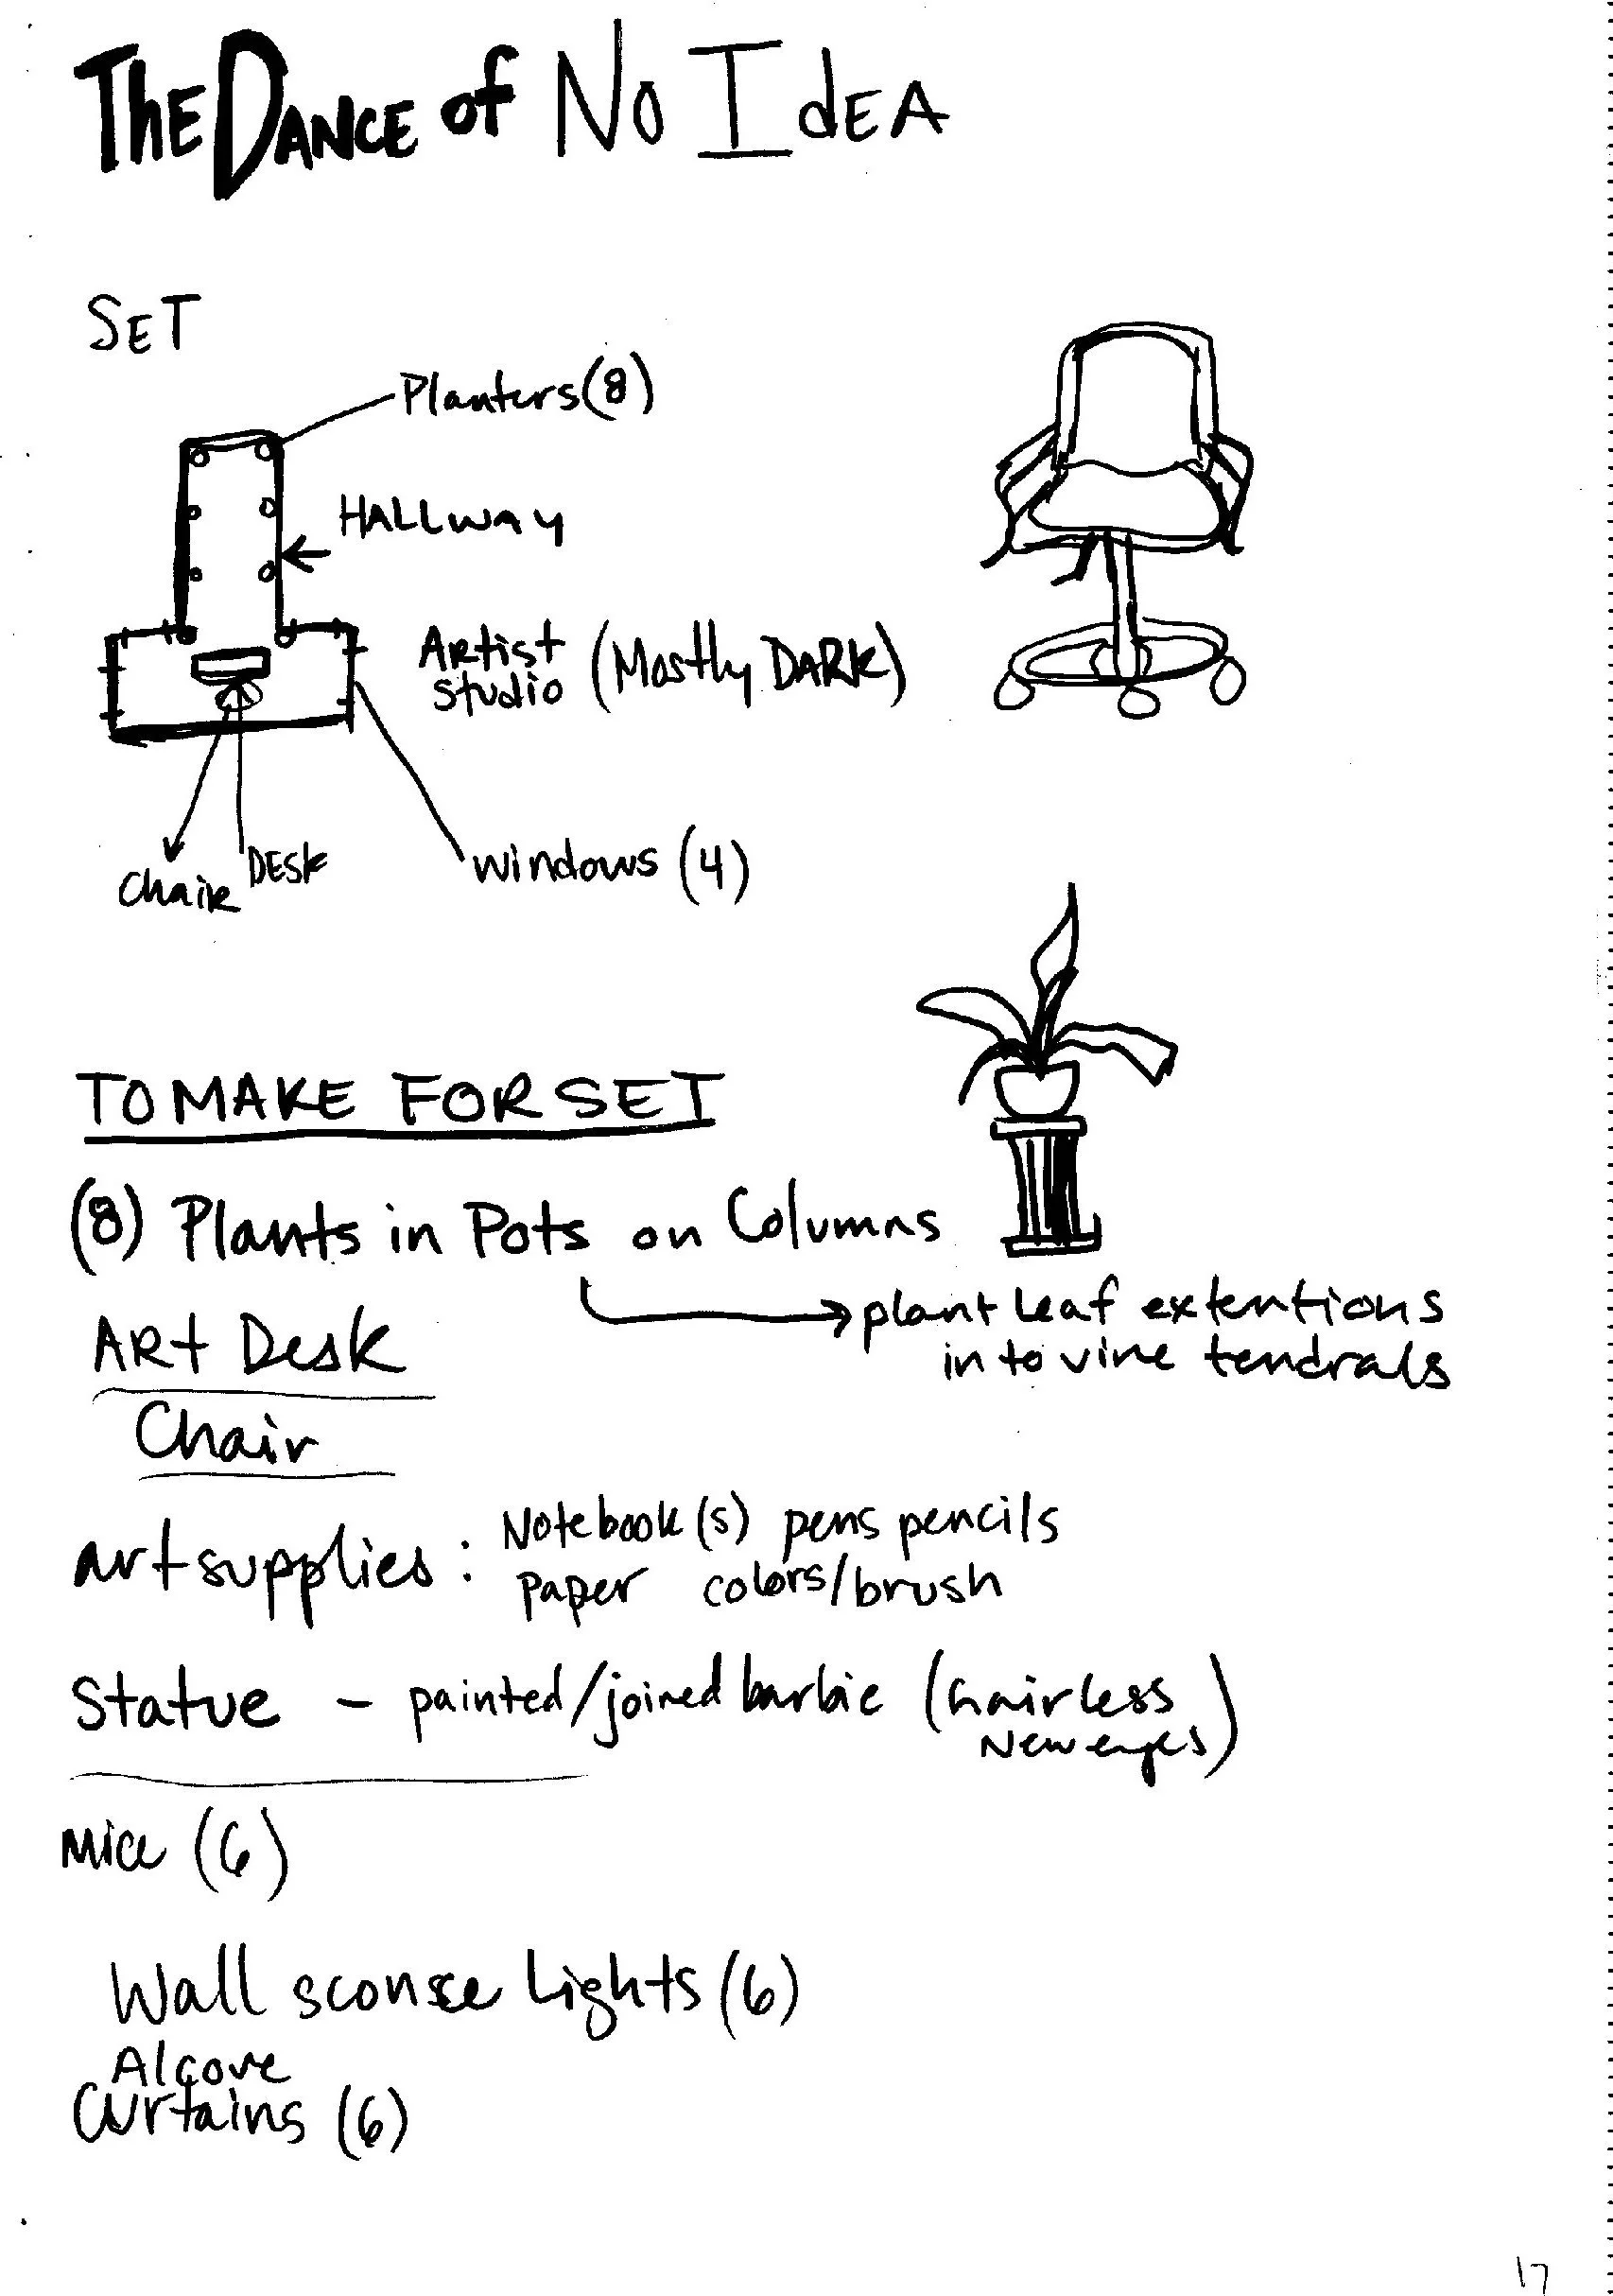 The Dance of No Idea
SET
Planters (8)
HALLWAY
Artist
studio (Mostly DARK)
Chair
DESK
windows (4)
TO MAKE FOR SET
(8) Plants in Pots on Columns
plant leaf extentions
into vine tendrals
Art Desk
Chair
art supplies : Notebook(s) pens pencils
paper colors/brush
Statue - painted/joined barbie (hairless
New eyes)
Mice (6)
Wall sconse Lights (6)
Alcove
Curtains (6)
17